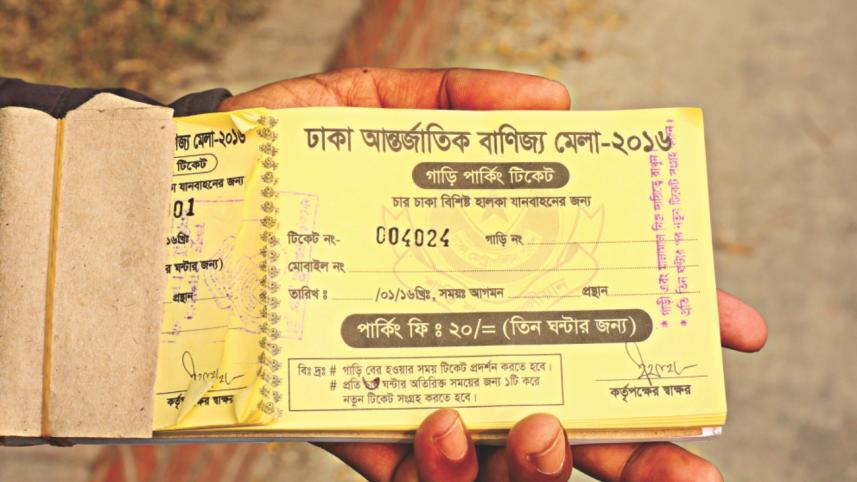 জ্য মেলা-২০১৬
টিকেট
যানবাহনের জন্য
01
১৬খ্রিঃ
র ঘন্টার জন্য)
প্রস্থান
কর্তৃপক্ষের স্বাক্ষর
ঢাকা আন্তর্জাতিক বাণিজ্য মেলা-২০১৬
গাড়ি পার্কিং টিকেট
চার চাকা বিশিষ্ট হালকা যানবাহনের জন্য
টিকেট নং- 004024 গাড়ি নং
মোবাইল নং
তারিখ ঃ /০১/১৬খ্রিঃ, সময়ঃ আগমন প্রস্থান
পার্কিং ফি ঃ ২০/= (তিন ঘন্টার জন্য)
বিঃ দ্রঃ # গাড়ি বের হওয়ার সময় টিকেট প্রদর্শন করতে হবে।
# প্রতি ঘন্টার অতিরিক্ত সময়ের জন্য ১টি করে
নতুন টিকেট সংগ্রহ করতে হবে।
কর্তৃপক্ষের স্বাক্ষর
* গাড়ী এবং মালামাল নিজ দায়িত্বে রাখুন
* প্রতি তিন ঘন্টার পর নতুন টিকেট সংগ্রহ করুন।